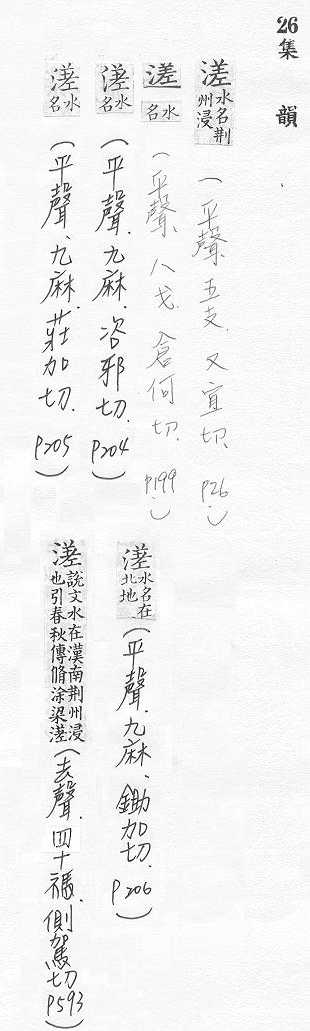 26 集韻
溠 水名荆州浸 (平聲、五支.又宜切. P26.)
溠 水名 (平聲、八戈.倉何切. P199.)
溠 水名 (平聲、九麻.咨邪切. P204)
溠 水名 (平聲、九麻.莊加切. P205)
溠 水名在北地 (平聲.九麻、鋤加切. P206)
溠 說文水在漢南荆州浸也引春秋傳脩涂梁溠 (去聲.四十禡.側駕切 P593)